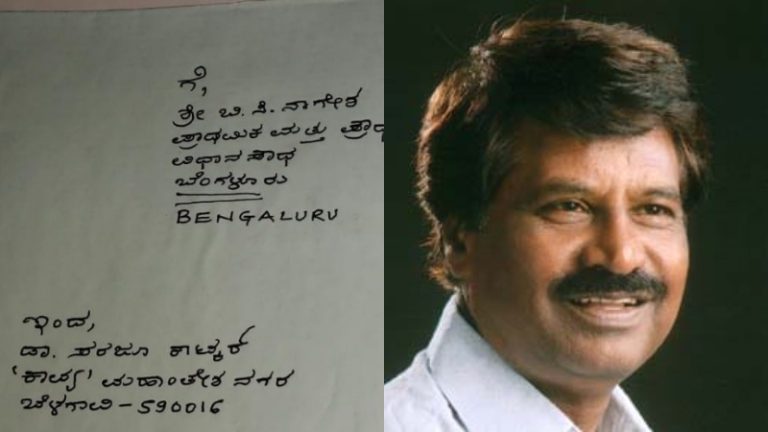 ಗೆ,
ಶ್ರೀ ಬಿ. ಸಿ. ನಾಗೇಶ
ಪ್ರಾಥಮಿಕ ಮತ್ತು
ವಿಧಾನ ಸೌಧ
ಬೆಂಗಳೂರು
BENGALURU
ಇಂದ,
ಡಾ. ಸರಜೂ ಕಾಟ್ಕರ್
'ಕಾವ್ಯ' ಮಹಾಂತೇಶ ನಗರ
ಬೆಳಗಾವಿ - 590016